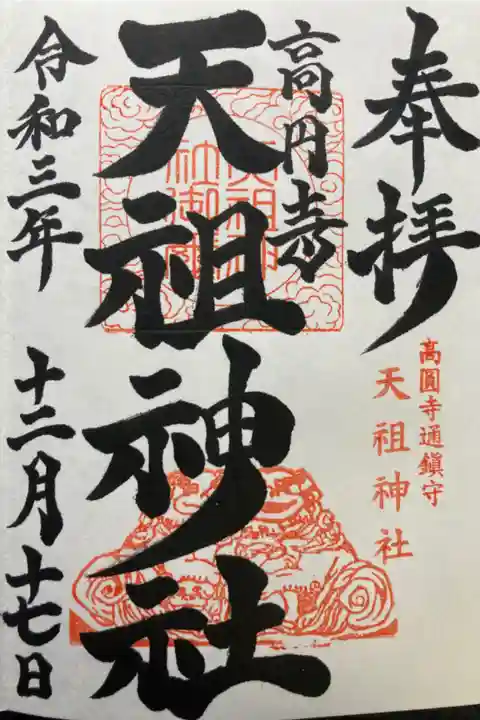 奉拝
高圓寺通鎮守
天祖神社
高円寺
天祖神社
天祖神社御璽
令和三年
十二月十七日